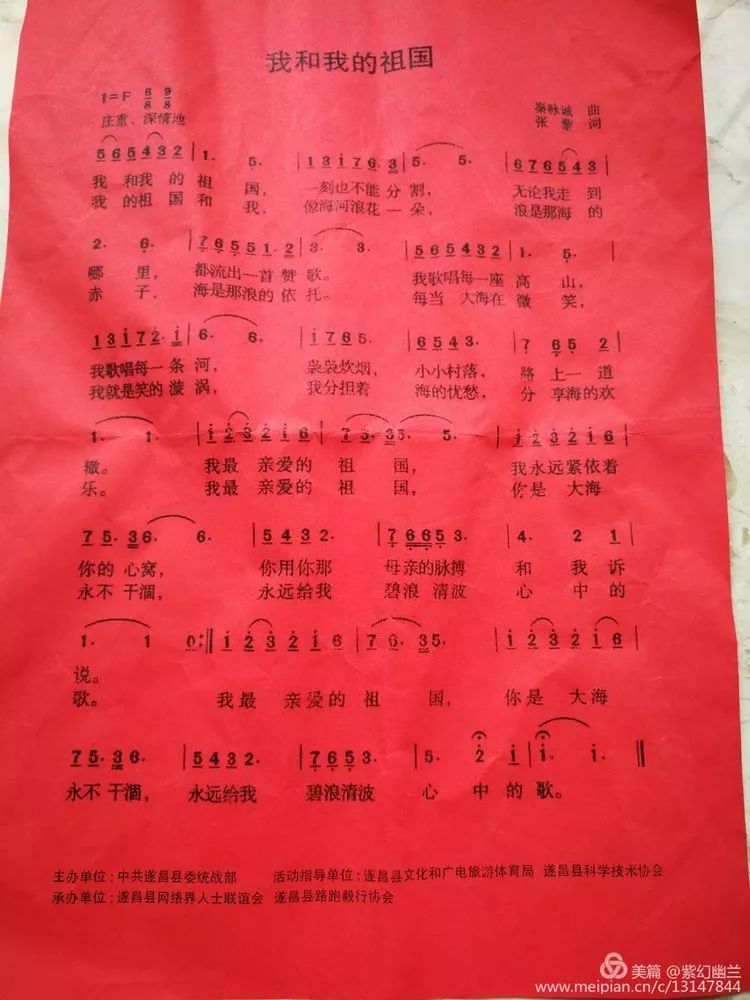 我和我的祖国
1=F 6/8 9/8
庄重、深情地
秦咏诚 曲
张黎 词
5 6 5 4 3 2 | 1. 5. | 1 3 i 7 6. 3 | 5. 5. | 6 7 6 5 4 3 |
我 和我 的 祖 国, 一刻也不能 分 割, 无论我走 到
我 的祖 国 和 我, 像海河浪花 一 朵, 浪是那海 的
2. 6. | 7 6 5 5 1. 2 | 3. 3. | 5 6 5 4 3 2 | 1. 5. |
哪 里, 都流出一首 赞 歌。 我歌唱每一座 高 山,
赤 子, 海是那浪的 依 托。 每当 大海在 微 笑,
1 3 i 7 2. i | 6. 6. | i 7 6 5. | 6 5 4 3. | 7 6 5 2 |
我歌唱每一 条 河, 袅袅炊烟, 小小村落, 路 上一 道
我就是笑的 漩 涡, 我分担着 海的忧愁, 分 享海的欢
1. 1. | i 2 3 2 i 6 | 7 5. 3 5. 5. | i 2 3 2 i 6 |
辙。 我最 亲爱的 祖 国, 我永远紧依着
乐。 我最 亲爱的 祖 国, 你是 大海
7 5. 3 6. 6. | 5 4 3 2. | 7 6 6 5 3. | 4. 2 1 |
你的 心窝, 你用你那 母亲的脉搏 和 我 诉
永不 干涸, 永远给我 碧浪 清波 心 中的
1. 1 0 :‖ i 2 3 2 i 6 | 7 6. 3 5. | i 2 3 2 i 6 |
说。
歌。 我最 亲爱的 祖 国, 你是 大海
7 5. 3 6. | 5 4 3 2. | 7 6 5 3. | 5. 2 i | i. i. ‖
永不 干涸, 永远给我 碧浪清波 心 中 的歌。
主办单位:中共遂昌县委统战部 活动指导单位:遂昌县文化和广电旅游体育局 遂昌县科学技术协会
承办单位:遂昌县网络界人士联谊会 遂昌县路跑毅行协会
美篇 @紫幻幽兰
www.meipian.cn/c/13147844